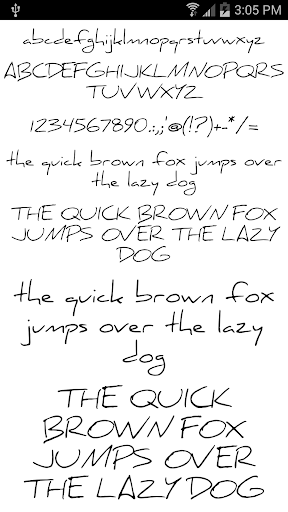 3:05 PM
abcdefghijklmnopqrstuvwxyz
ABCDEFGHIJKLMNOPQRS
TUVWXYZ
1234567890.:,;'@(!?)+-*/=
the quick brown fox jumps over
the lazy dog
THE QUICK BROWN FOX
JUMPS OVER THE LAZY
DOG
the quick brown fox
jumps over the lazy
dog
THE QUICK
BROWN FOX
JUMPS OVER
THE LAZY DOG